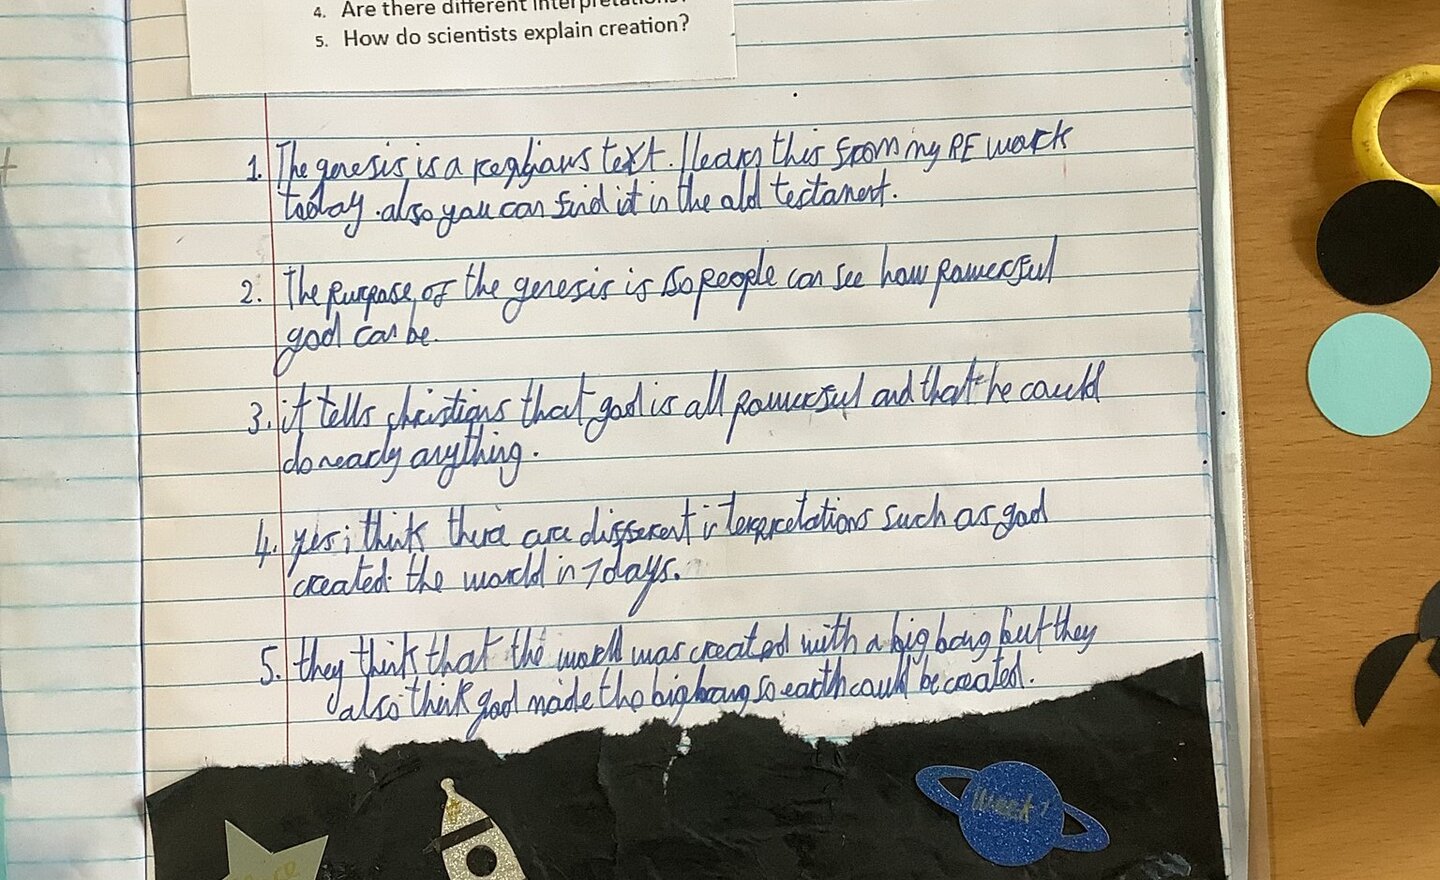 4. Are there different interpretations?
5. How do scientists explain creation?
1. The genesis is a regligious text. I learn this from my RE work
today. also you can find it in the old testament.
2. The purpose of the genesis is so people can see how powerful
god can be.
3. it tells christians that god is all powerful and that he could
do nearly anything.
4. yes i think there are different interpretations such as god
created the world in 7 days.
5. they think that the world was created with a big bang but they
also think god made the big bang so earth could be created.
Week 1